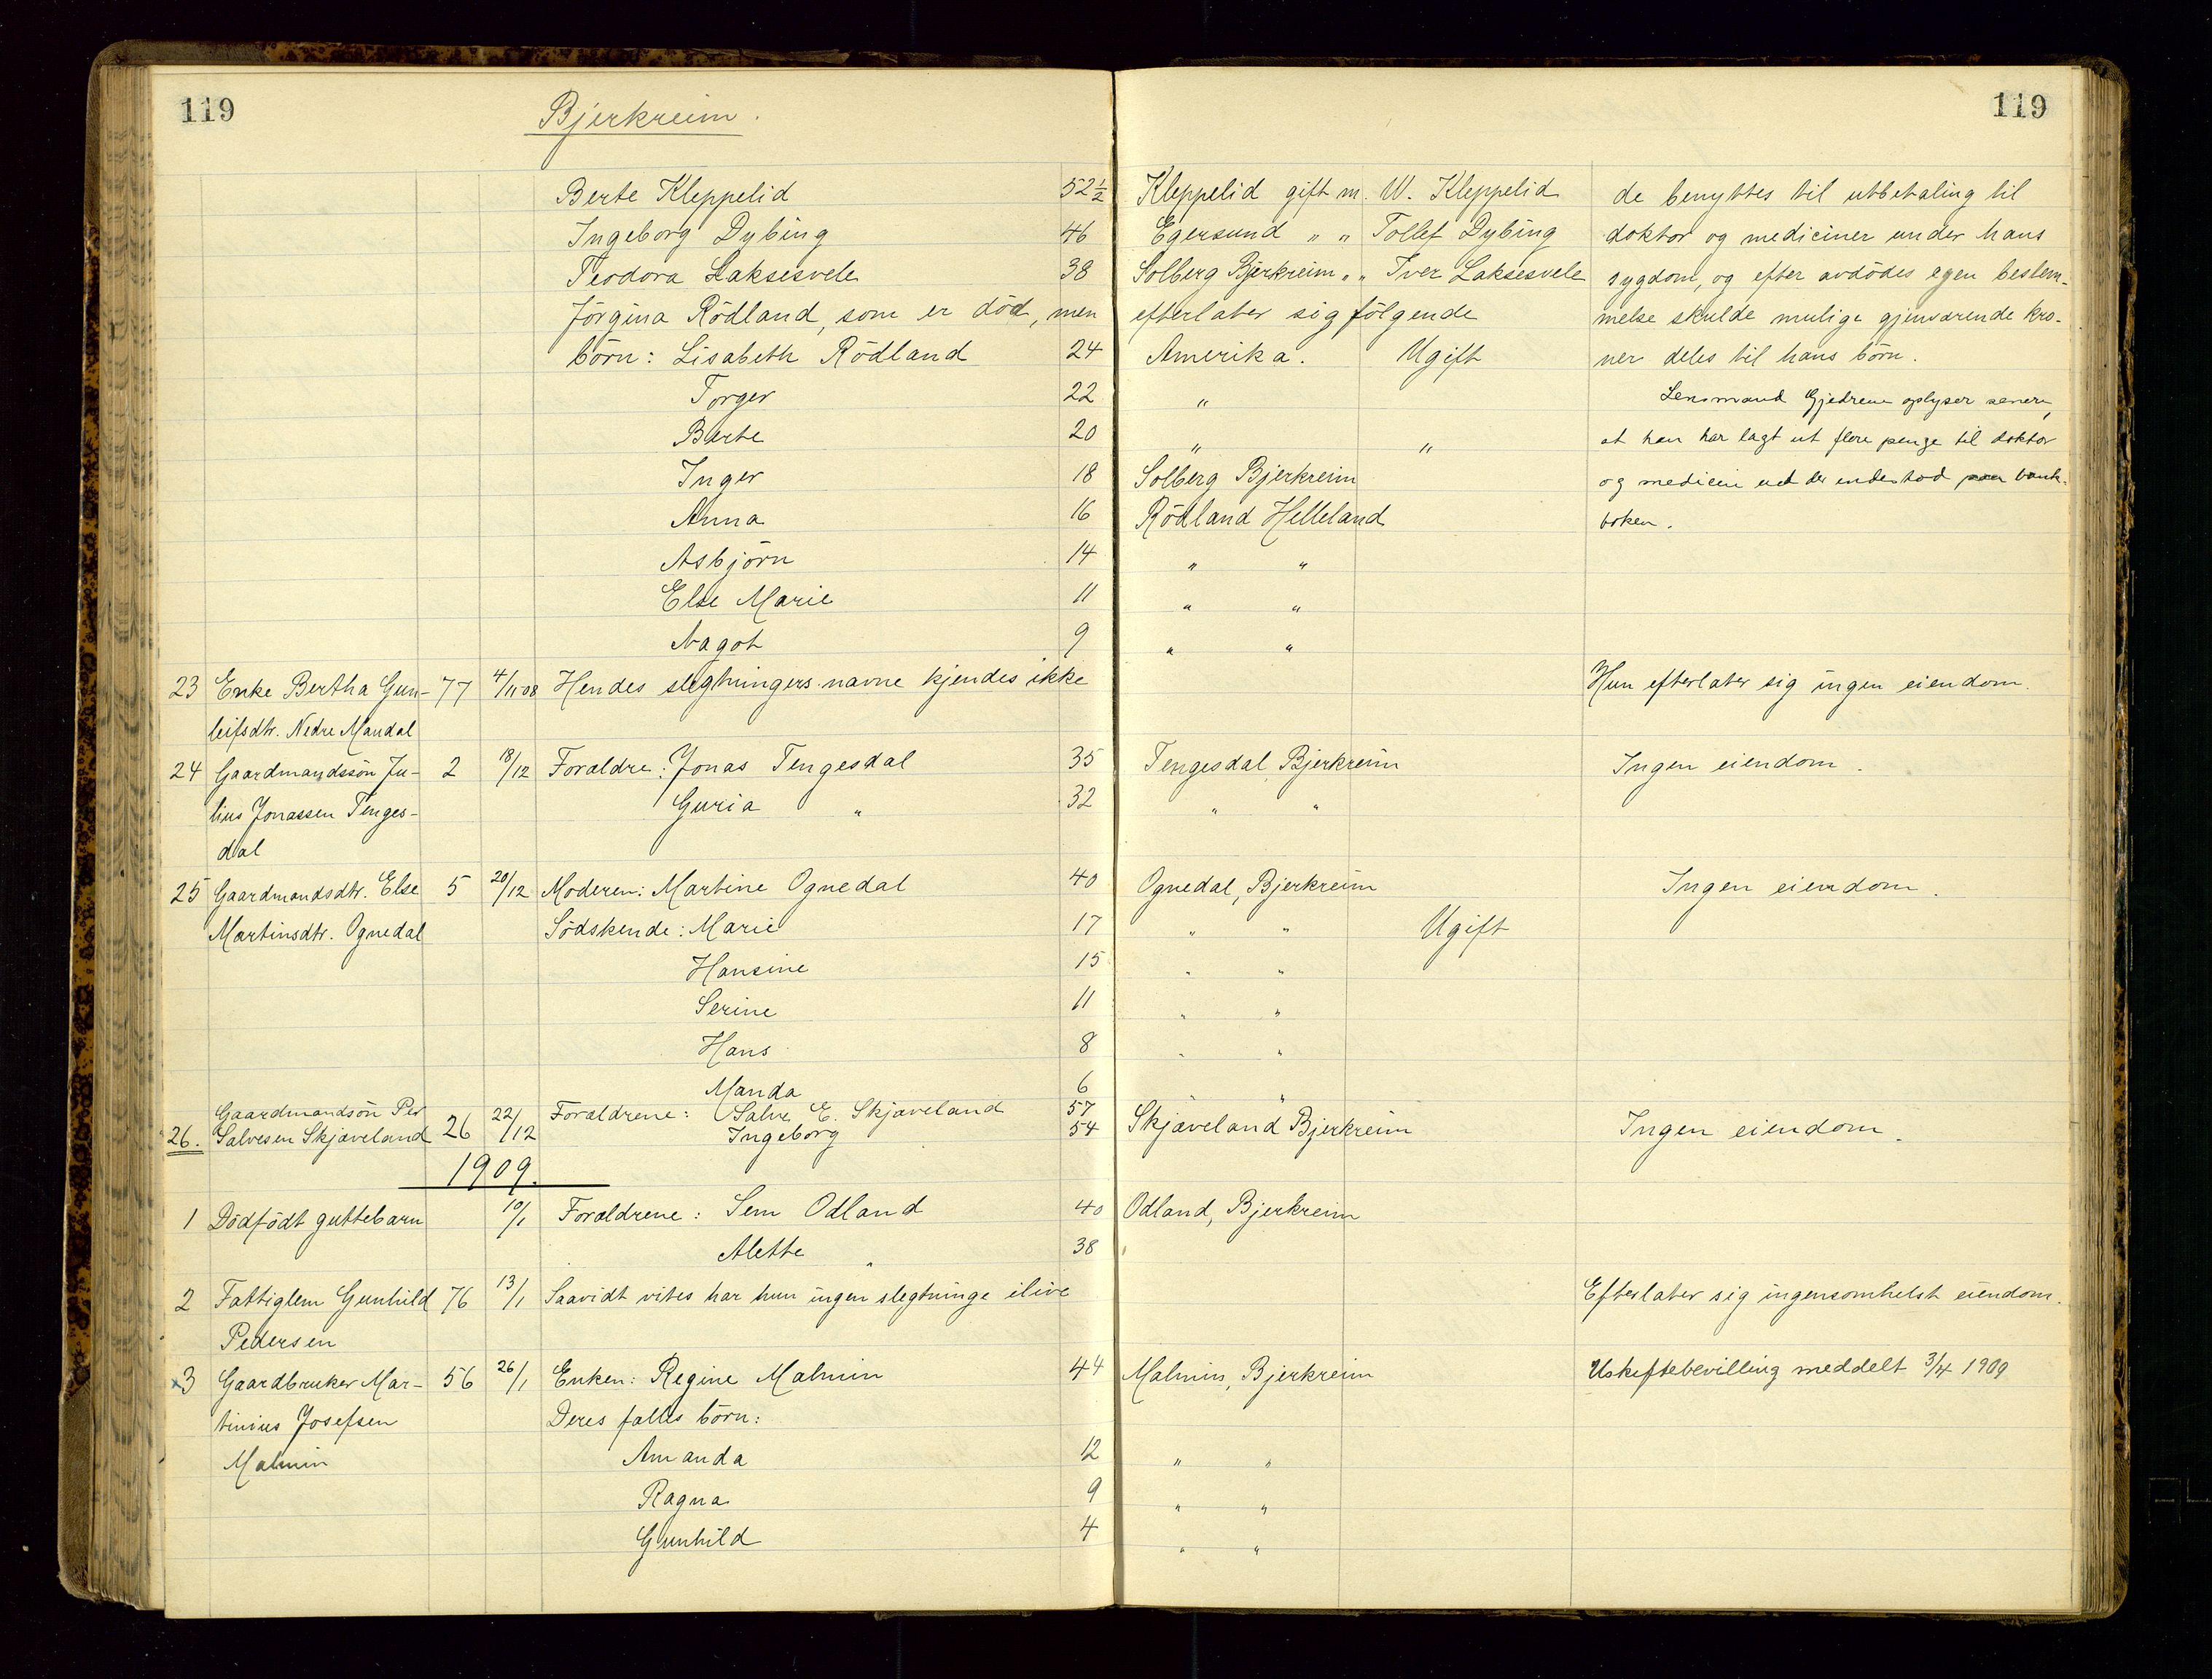 119 Bjerkreim. 119
Berte Kleppelid 52 1/2 Kleppelid gift m. W. Kleppelid de benyttes til utbetaling til
Ingeborg Dybing 46 Egersund " " Tollef Dybing doktor og mediciner under hans
Teodora Laksesvele 38 Solberg Bjerkreim " " Iver Laksesvele sygdom, og efter avdödes egen bestem-
Jörgina Rödland, som er död, men efterlater sig følgende melse skulde mulige gjenværende kro-
börn: Lisabeth Rödland 24 Amerika. Ugift ner deles til hans börn.
Torger 22 " Lensmand Gjedrem oplyser senere,
Berte 20 " " at han har lagt ut flere penge til doktor
Inger 18 Solberg Bjerkreim og medicin end der indestod paa bank-
Anna 16 Rödland Helleland boken.
Asbjörn 14 " "
Else Marie 11 " "
Aagot 9 " "
23 Enke Bertha Gun- 77 4/11 08 Hendes slegtningers navne kjendes ikke Hun efterlater sig ingen eiendom.
leifsdtr. Nedre Maudal
24 Gaardmandssön Ju- 2 18/12 Forældre: Jonas Tengesdal 35 Tengesdal, Bjerkreim Ingen eiendom.
lius Jonassen Tenges- Guria " 32 " "
dal
25 Gaardmandsdtr. Else 5 20/12 Moderen: Martine Ognedal 40 Ognedal, Bjerkreim Ingen eiendom.
Martinsdtr. Ognedal Södskende: Marie 17 " " Ugift
Hansine 15 " "
Serine 11 " "
Hans 8 " "
Manda 6 " "
Gaardmandsön Per 22/12 Forældrene: Salve E. Skjæveland 57
26. Salvesen Skjæveland 26 Ingeborg 54 Skjæveland Bjerkreim Ingen eiendom.
1909.
1 Dödfödt guttebarn 10/1 Forældrene: Sem Odland 40 Odland, Bjerkreim
Alette " 38 "
2 Fattiglem Gunhild 76 13/1 Saavidt vites har hun ingen slegtninge ilive Efterlater sig ingensomhelst eiendom.
Pedersen
x3 Gaardbruker Mar- 56 26/1 Enken: Regine Malmin 44 Malmin, Bjerkreim Uskiftebevilling meddelt 3/4 1909
tinius Josefsen Deres fælles börn:
Malmin Amanda 12 " "
Ragna 9 " "
Gunhild 4 " "